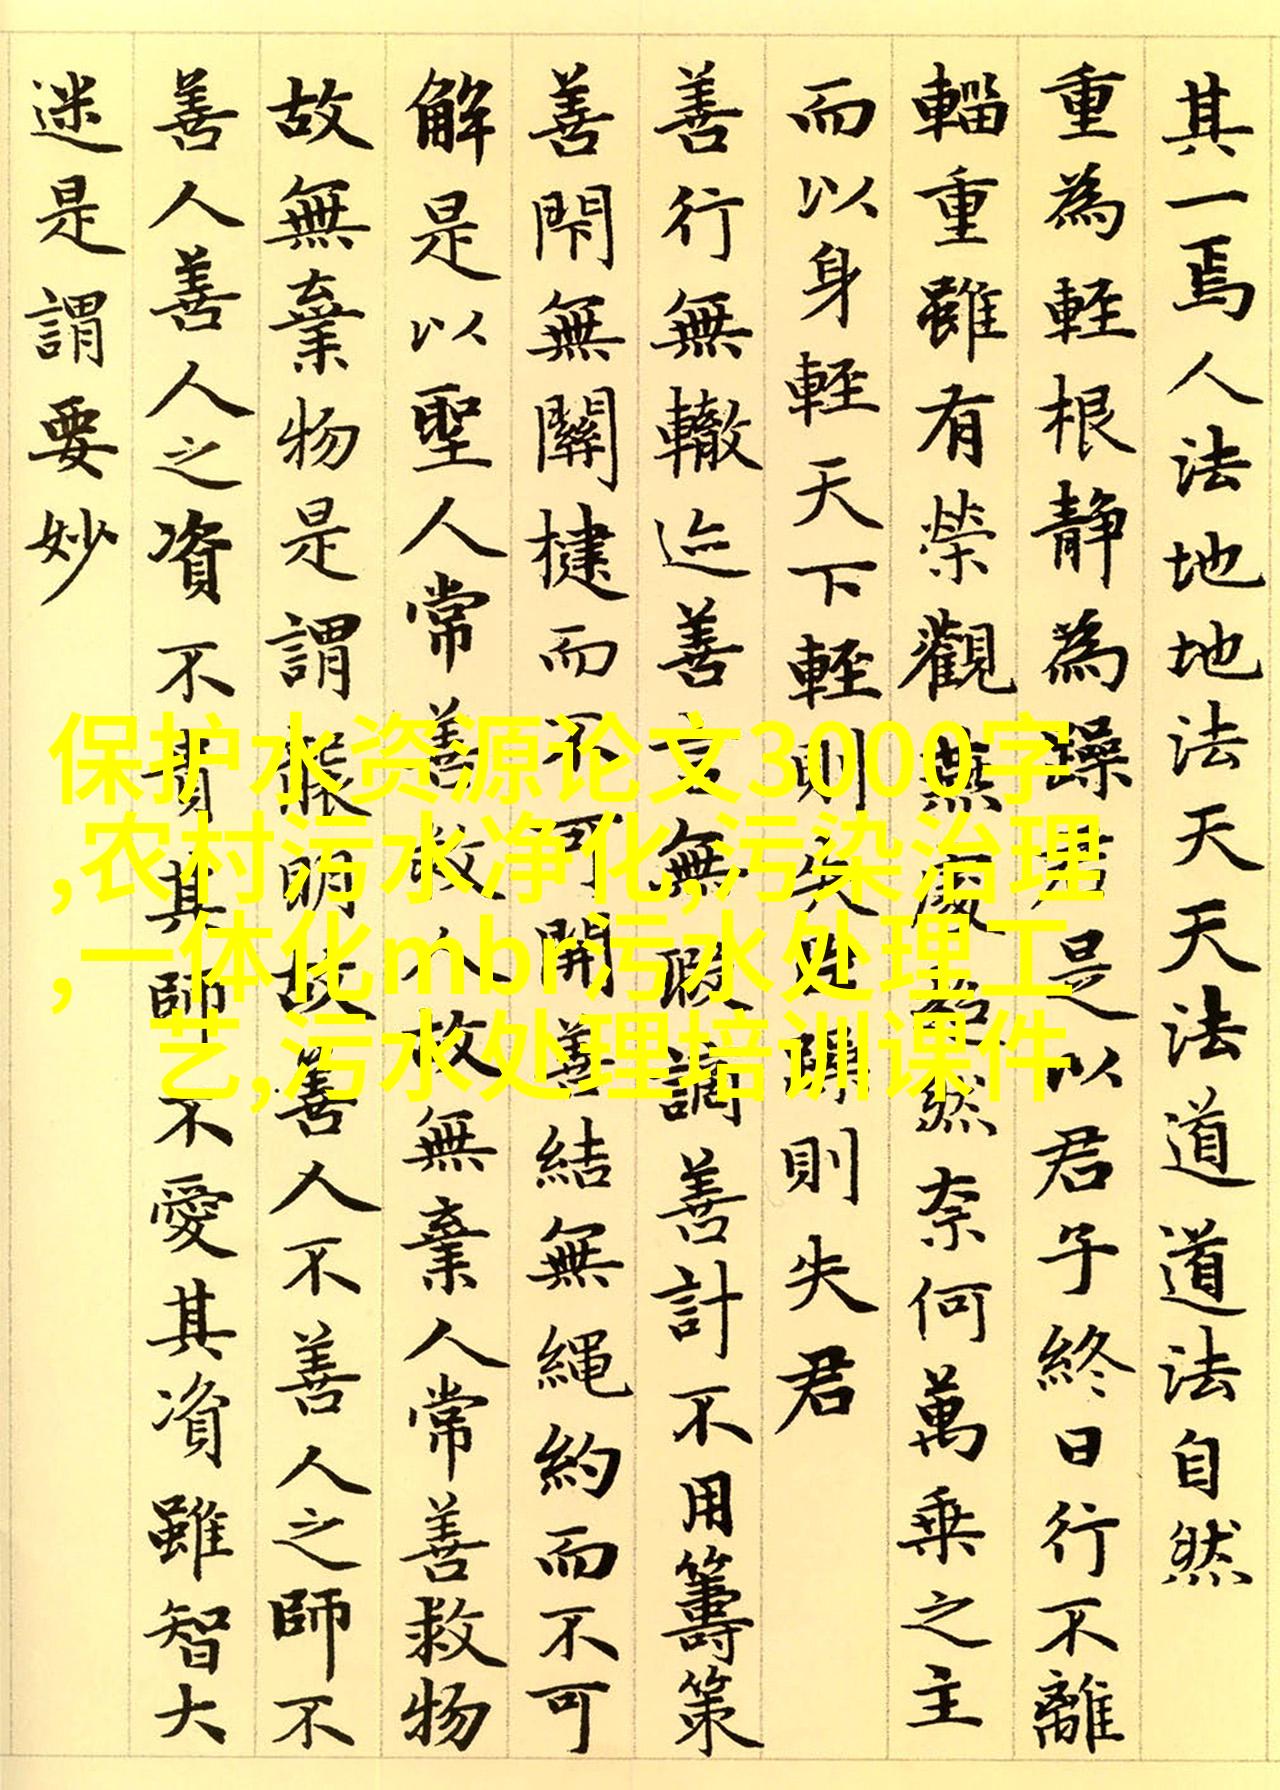 其一焉人法地地法天天法道道法自然
重為輕根静為躁君是以君子終日行不離
輜重雖有榮觀燕處超然奈何萬乗之主
而以身輕天下輕則失臣躁則失君
善行無轍迹善言無瑕謫善計不用籌策
善閇無關楗而不可開善結無縄約而不可
解是以聖人常善救人故無棄人常善救物
故無棄物是謂襲明故善人不善人之師不
善人善人之資不貴其師不愛其資雖智大
迷是謂要妙
保护水资源论文3000字
,农村污水净化,污染治理
,一体化mbr污水处理工
艺,污水处理培训课件